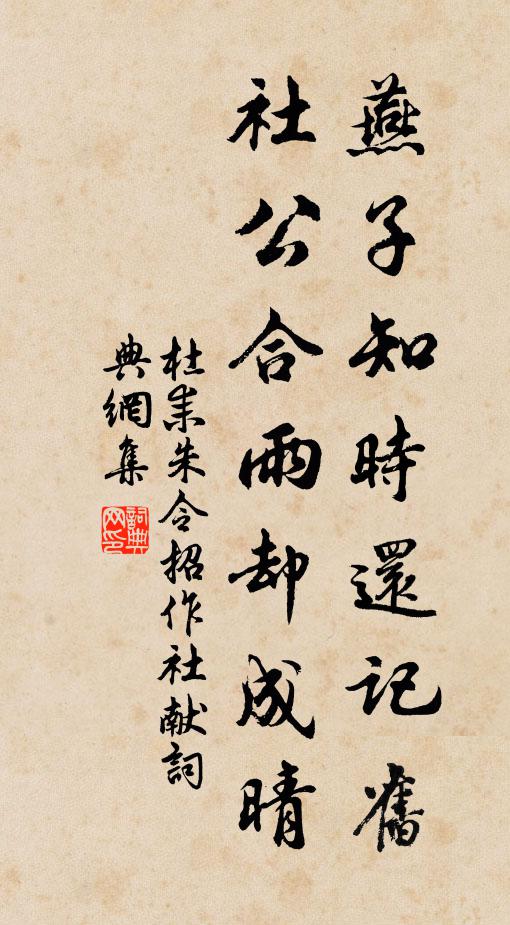 燕子知時還記舊
社公合雨却成晴
杜耒朱令招作社献詞
典網集
詞典網印